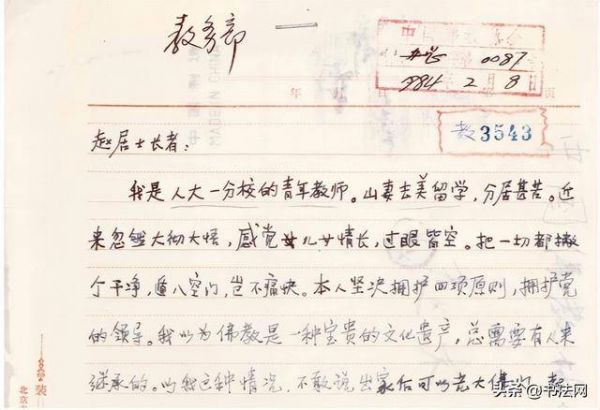 教务部
0087
1984年2月8日
年
页
教3543
赵居士长者：
我是人大一分校的青年教师。山妻去美留学，分居甚苦。近
来忽然大彻大悟，感觉儿女情长，过眼皆空。把一切都撇
个干净，遁入空门，岂不痛快。本人坚决拥护四项原则，拥护党
的领导。我以为佛教是一种宝贵的文化遗产，总需要有人来
继承的。以我这种情况，不敢说出家后可以光大佛门，
装
北京市
MADE IN CHINA
头条@书法网